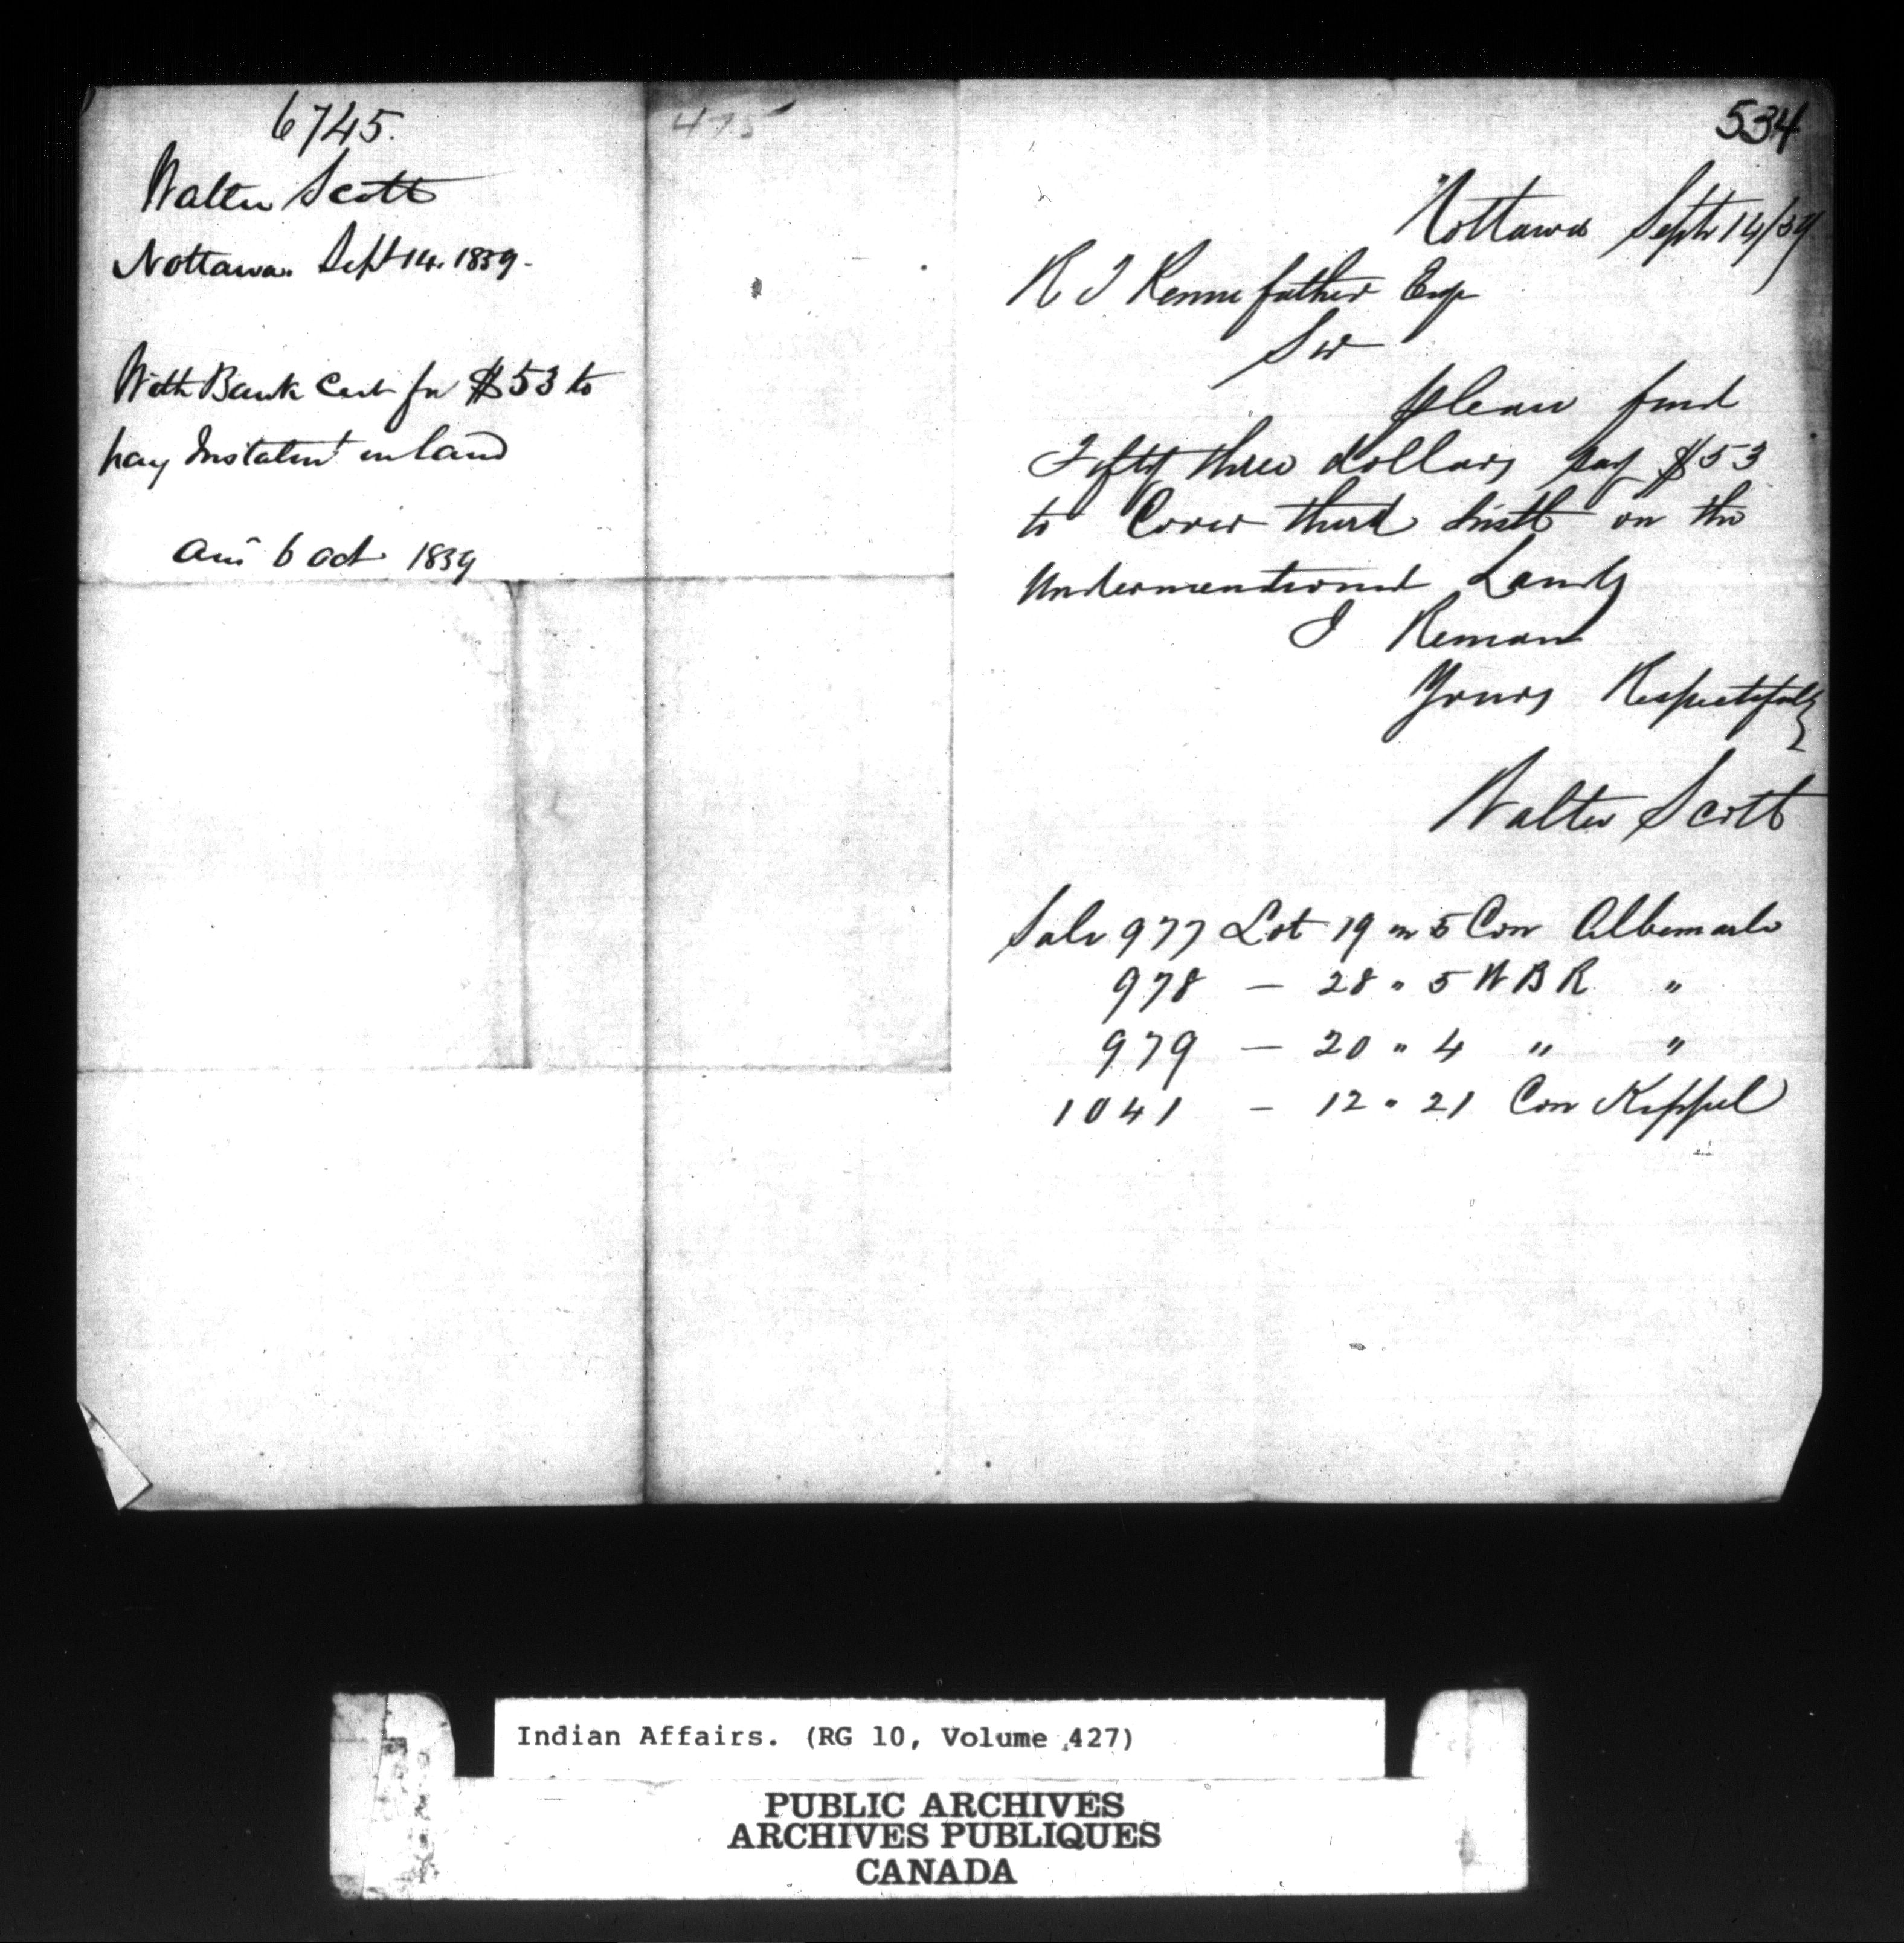 6745.
Walter Scott
Nottawa. Sept 14. 1859.
With Bank Cert for $53 to
pay Instalmt on land
Ans 6 Oct 1859
475
534
Nottawa Septr 14/59
R T Pennefather Esqr
Sir
please find
Fifty three dollars say $53
to Cover third Instt on the
Undermentioned Lands
I Remain
Yours Respectfully
Walter Scott
Sale 977 Lot 19 in 5 Con Albemarle
978 — 28 " 5 W B R "
979 — 20 " 4 " "
1041 — 12 " 21 Con Keppel
Indian Affairs. (RG 10, Volume 427)
PUBLIC ARCHIVES
ARCHIVES PUBLIQUES
CANADA